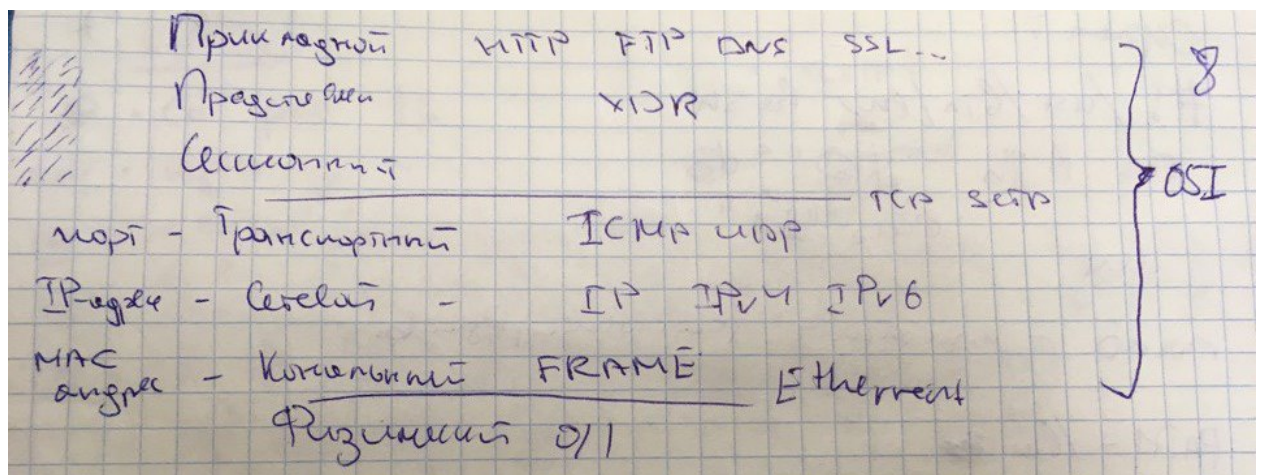 Прикладной HTTP FTP DNS SSL...
8
Представи XDR
Сессионный
OSI
TCP SCTP
порт - Транспортный ICMP UDP
IP-адрес - Сетевой - IP IPv4 IPv6
MAC адрес - Канальный FRAME Ethernet
Физический 0/1